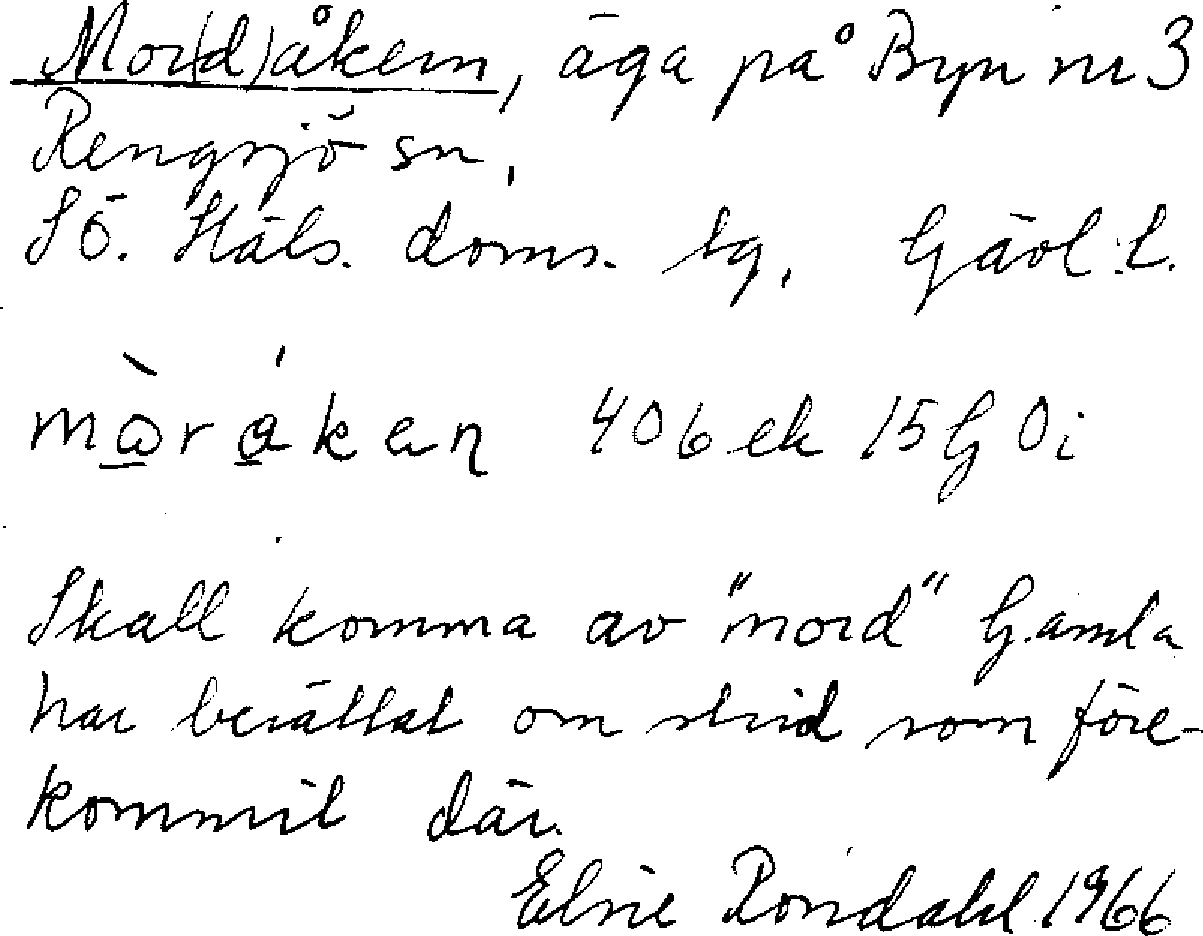 Mor(d)åkern, äga på Byn nr 3
Rengsjö sn,
Sö. Häls. doms. tg, Gävl. l.
mår åkeṇ 406 ek 15 G 0 i
Skall komma av "mord" Gamla
har berättat om strid som före-
kommit där.
Elsie Rondahl 1966